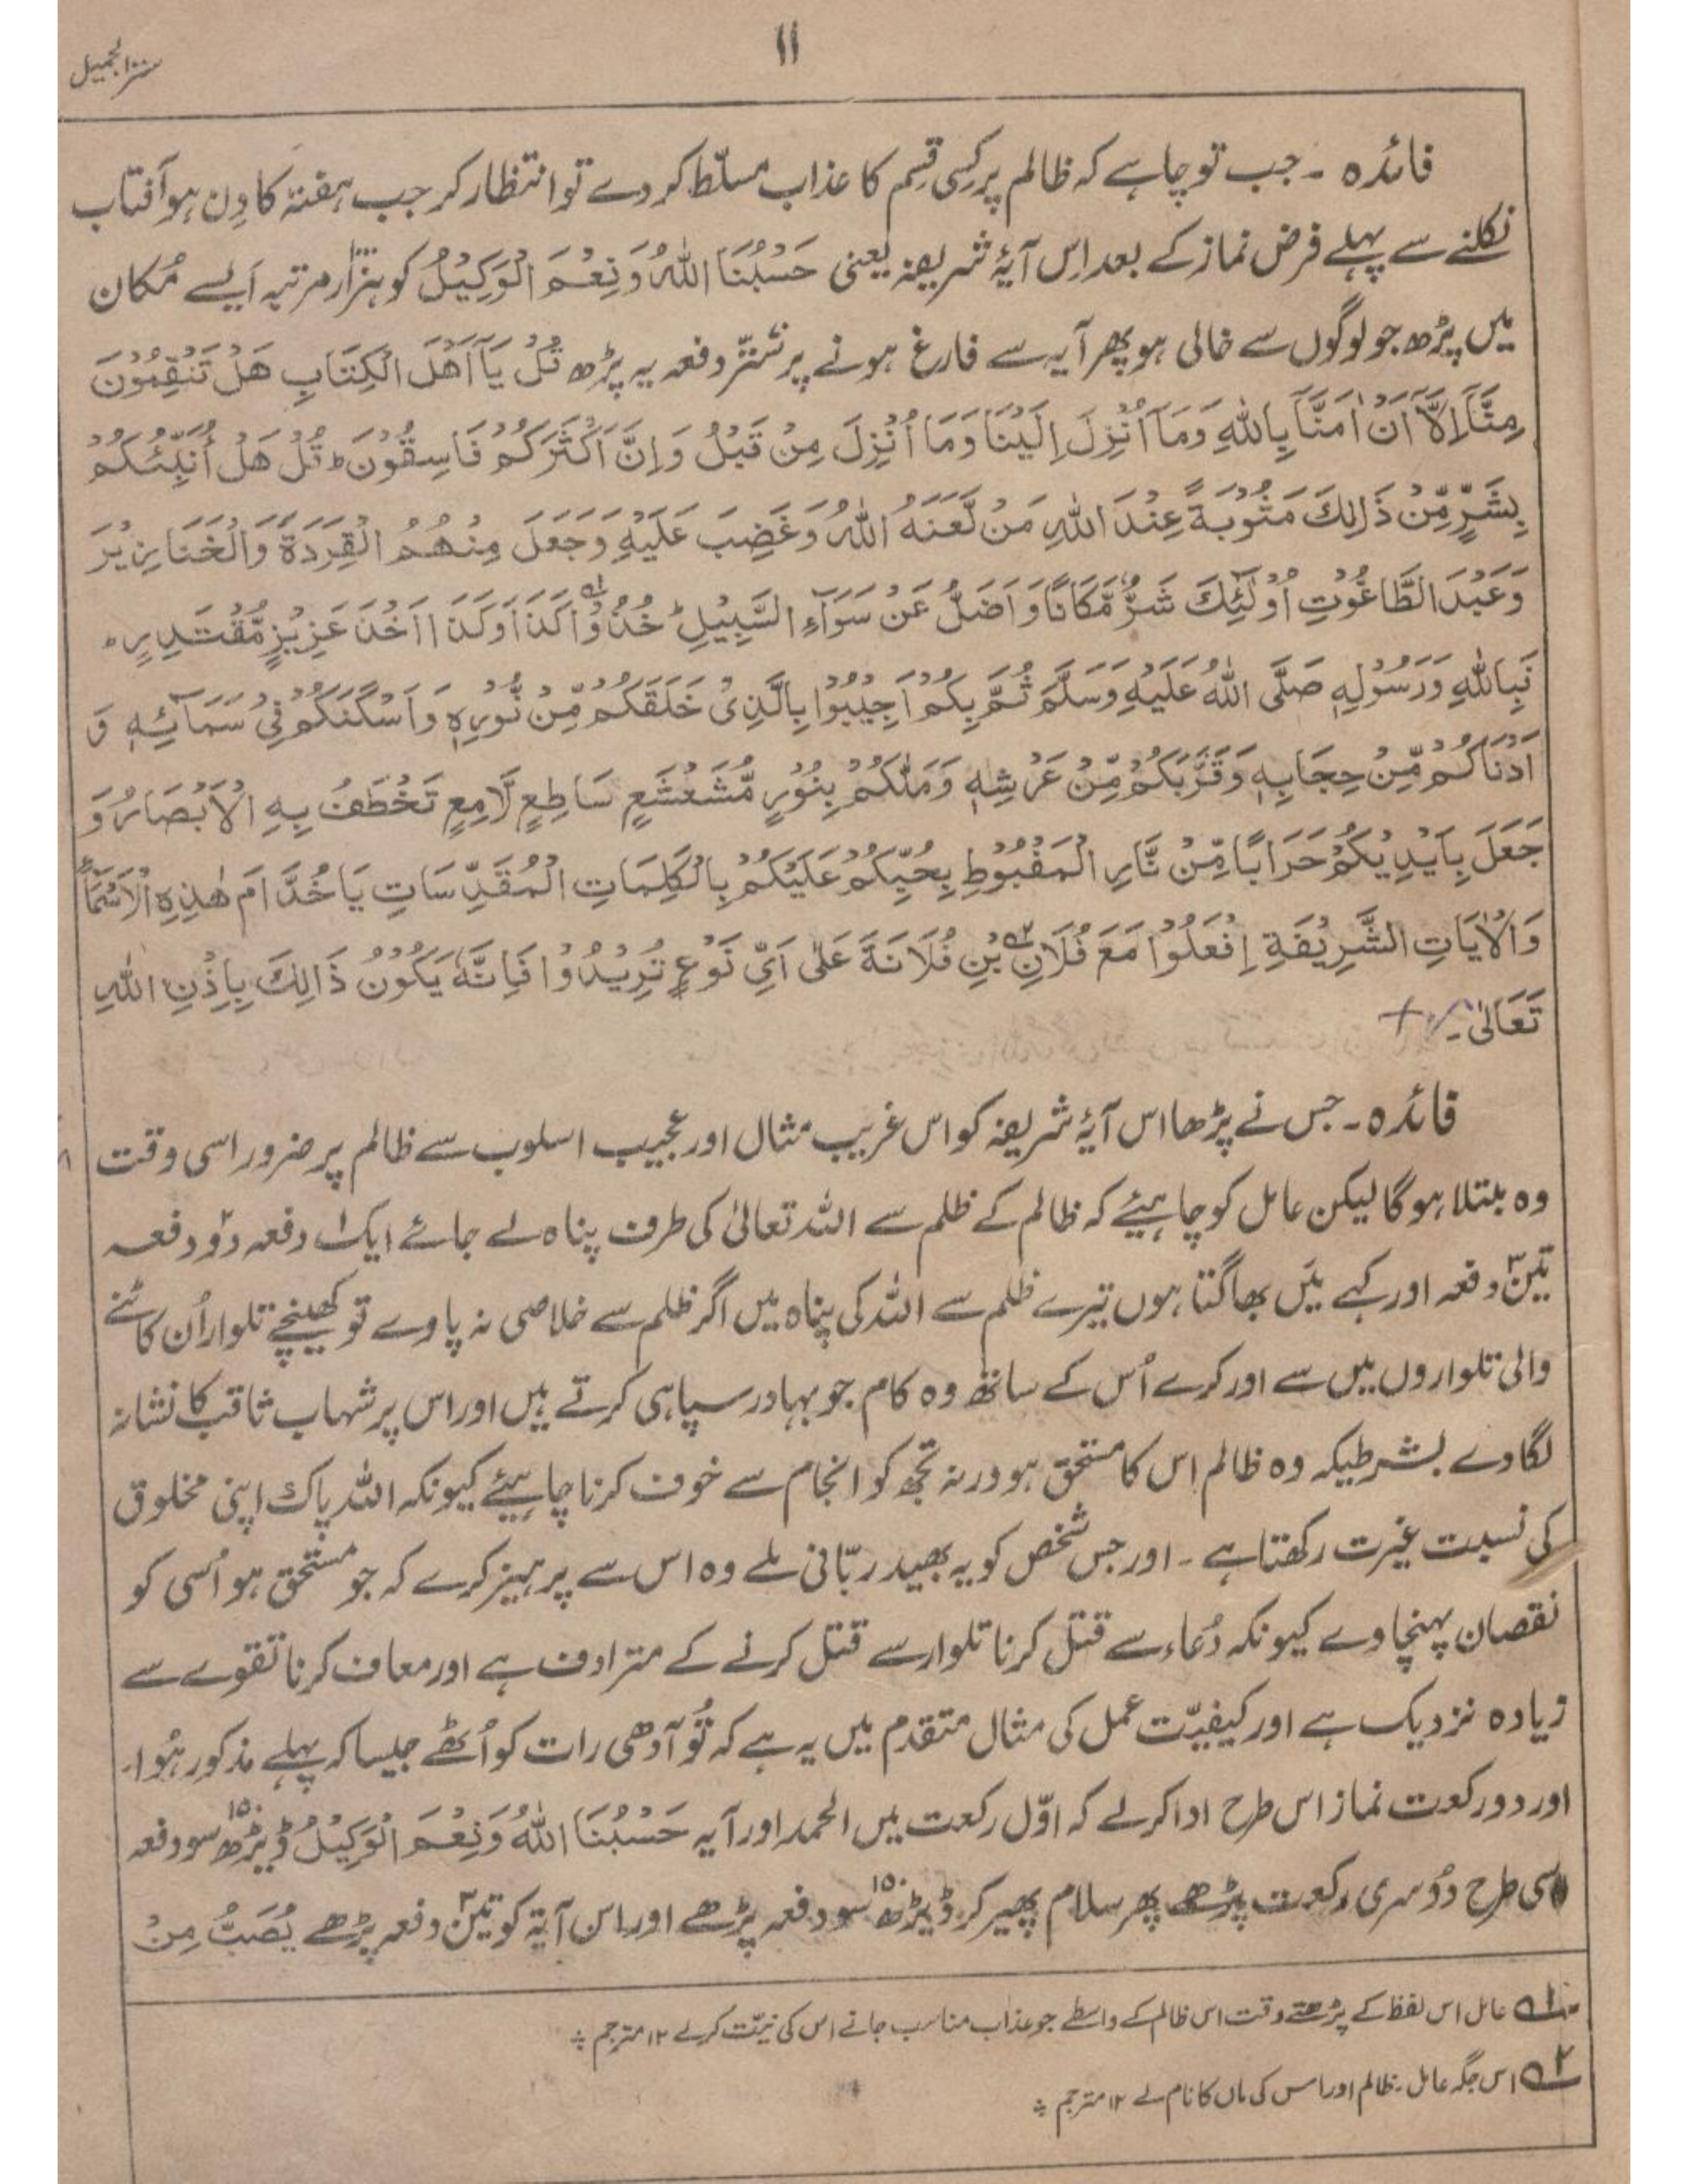 ۱۱
ستر الجمیل
فائدہ ۔ جب تو چاہے کہ ظالم پر کِسی قِسم کا عذاب مسلّط کر دے تو انتظار کر جب ہفتہ کا دِن ہو آفتاب
نکلنے سے پہلے فرض نماز کے بعد اِس آیۂ شریفہ یعنی حَسْبُنَا اللّٰهُ وَنِعْمَ الْوَكِيْلُ کو ہزار مرتبہ اَیسے مُکان
میں پڑھ جو لوگوں سے خالی ہو پھر آیہ سے فارغ ہونے پر ستّر دفعہ یہ پڑھ قُلْ يَآ اَهْلَ الْكِتَابِ هَلْ تَنْقِمُوْنَ
مِنَّآ اِلَّآ اَنْ اٰمَنَّا بِاللّٰهِ وَمَآ اُنْزِلَ اِلَيْنَا وَمَا اُنْزِلَ مِنْ قَبْلُ وَاِنَّ اَكْثَرَكُمْ فَاسِقُوْنَ ط قُلْ هَلْ اُنَبِّئُكُمْ
بِشَرٍّ مِّنْ ذٰلِكَ مَثُوْبَةً عِنْدَ اللّٰهِ مَنْ لَّعَنَهُ اللّٰهُ وَغَضِبَ عَلَيْهِ وَجَعَلَ مِنْهُمُ الْقِرَدَةَ وَالْخَنَازِيْرَ
وَعَبَدَ الطَّاغُوْتِ اُوْلٰٓئِكَ شَرٌّ مَّكَانًا وَاَضَلُّ عَنْ سَوَآءِ السَّبِيْلِ ط خُذُوْا۱ كَذَا وَكَذَا اَخْذَ عَزِيْزٍ مُّقْتَدِرٍ ہ
فَبِاللّٰهِ وَرَسُوْلِهٖ صَلَّى اللّٰهُ عَلَيْهِ وَسَلَّمَ ثُمَّ بِكُمْ اَجِيْبُوْا بِالَّذِىْ خَلَقَكُمْ مِّنْ نُّوْرِهٖ وَاَسْكَنَكُمْ فِىْ سَمَآئِهٖ وَ
اَدْنَاكُمْ مِّنْ حِجَابِهٖ وَقَرَّبَكُمْ مِّنْ عَرْشِهٖ وَمَلَّكُمْ بِنُوْرٍ مُّشَعْشَعٍ سَاطِعٍ لَّامِعٍ تَخْطَفُ بِهِ الْاَبْصَارُ وَ
جَعَلَ بِاَيْدِيْكُمْ حَرَابًا مِّنْ نَّارِ الْمَقْبُوْطِ بِحُبِّكُمْ عَلَيْكُمْ بِالْكَلِمَاتِ الْمُقَدَّسَاتِ يَا خُدَّامَ هٰذِهِ الْاَسْمَآءِ
وَالْاٰيَاتِ الشَّرِيْفَةِ اِفْعَلُوْا مَعَ فُلَانِ۲ بْنِ فُلَانَةَ عَلٰى اَىِّ نَوْعٍ تُرِيْدُوْا فَاِنَّهٗ يَكُوْنُ ذَالِكَ بِاِذْنِ اللّٰهِ
تَعَالٰى ۔
فائدہ ۔ جس نے پڑھا اس آیۂ شریفہ کو اس غریب مثال اور عجیب اسلوب سے ظالم پر ضرور اسی وقت
وہ مبتلا ہوگا لیکن عامل کو چاہیئے کہ ظالم کے ظلم سے اللہ تعالیٰ کی طرف پناہ لے جائے ایک۱ دفعہ دو۲ دفعہ
تین۳ دفعہ اور کہے میَں بھاگتا ہوں تیرے ظلم سے اللہ کی پناہ میں اگر ظلم سے خلاصی نہ پاوے تو کھینچے تلوار اُن کاٹنے
والی تلواروں میں سے اور کرے اُس کے ساتھ وہ کام جو بہادر سپاہی کرتے ہیں اور اس پر شہاب ثاقب کا نشانہ
لگاوے بشرطیکہ وہ ظالم اِس کا مستحق ہو ورنہ تجھ کو انجام سے خوف کرنا چاہیئے کیونکہ اللہ پاک اپنی مخلوق
کی نسبت غیرت رکھتا ہے ۔ اور جس شخص کو یہ بھید ربّانی ملے وہ اس سے پرہیز کرے کہ جو مستحق ہو اُسی کو
نقصان پہنچاوے کیونکہ دُعاء سے قتل کرنا تلوار سے قتل کرنے کے مترادف ہے اور معاف کرنا تقوےٰ سے
زیادہ نزدیک ہے اور کیفیّت عمل کی مثال متقدم میں یہ ہے کہ تُو آدھی رات کو اُٹھے جیسا کہ پہلے مذکور ہُوا۔
اور دو رکعت نماز اس طرح ادا کرلے کہ اوّل رکعت میں الحمد اور آیہ حَسْبُنَا اللّٰهُ وَنِعْمَ الْوَكِيْلُ ڈیڑھ سو۱۵۰ دفعہ
اسی طرح دُوسری رکعت پڑھے پھر سلام پھیر کر ڈیڑھ سو۱۵۰ دفعہ پڑھے اور اس آیۃ کو تین۳ دفعہ پڑھے يُصَبُّ مِنْ
۱ عامل اس لفظ کے پڑھتے وقت اس ظالم کے واسطے جو عذاب مناسب جانے اس کی نیّت کرلے ۱۲ مترجم
۲ اس جگہ عامل ظالم اور اس کی ماں کا نام لے ۱۲ مترجم